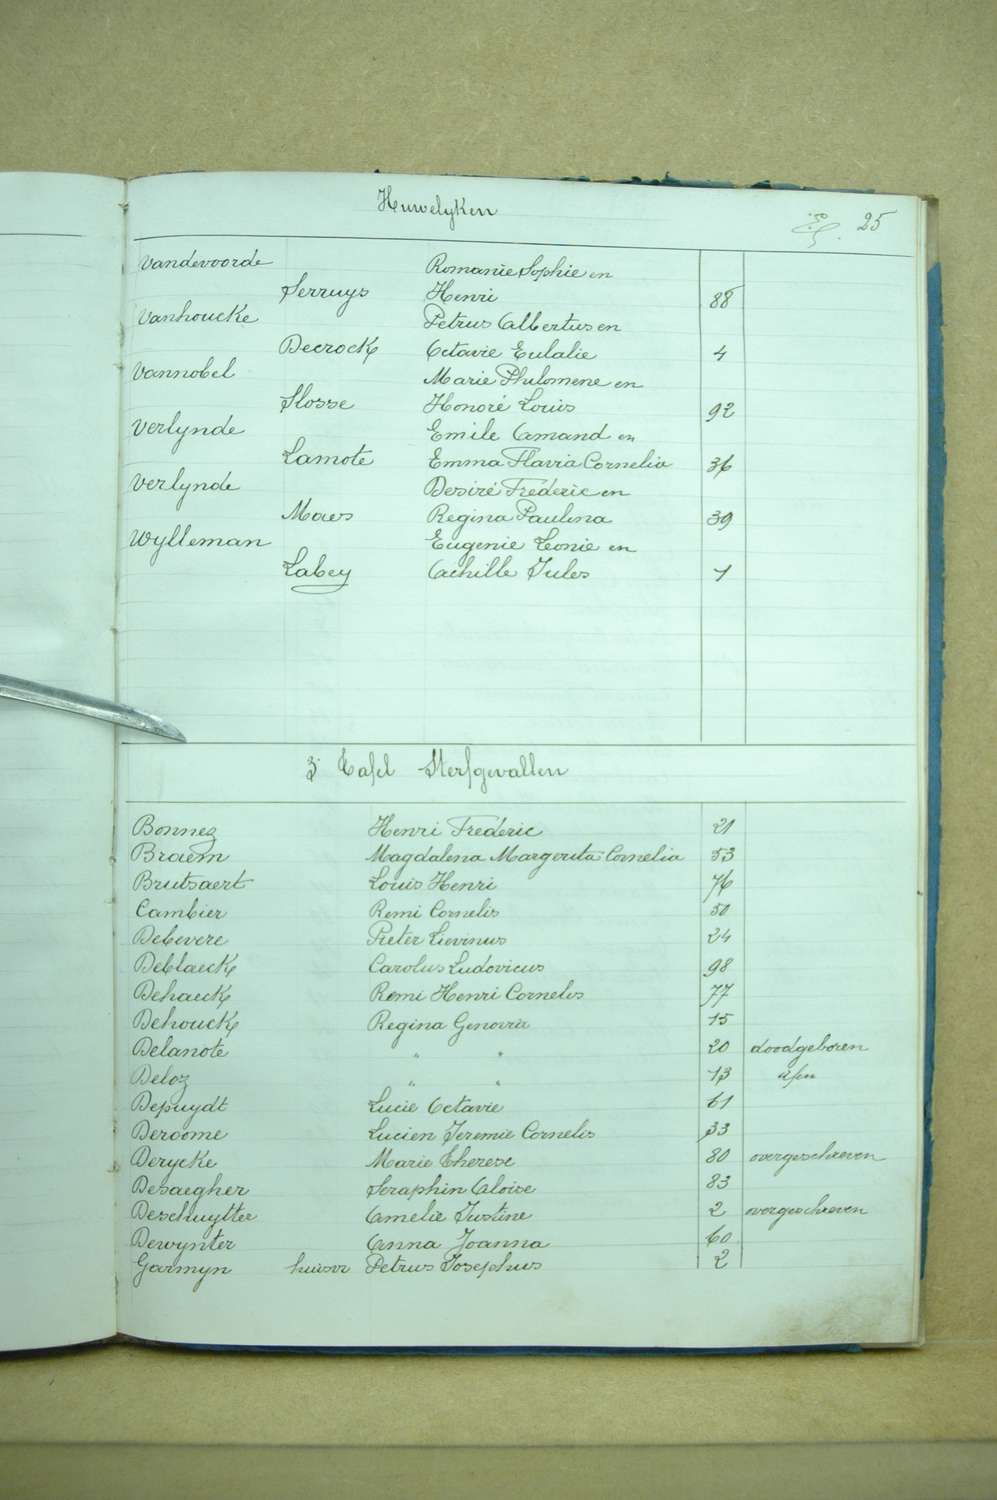 Huwelyken
25
Vandevoorde Romanie Sophie en
Serruys Henri 88
Vanhoucke Petrus Albertus en
Decrock Octavie Eulalie 4
Vannobel Marie Philomene en
Slosse Honoré Louis 92
Verlynde Emile Amand en
Lamote Emma Flavia Cornelia 36
Verlynde Desiré Fréderic en
Maes Regina Paulina 39
Wylleman Eugenie Leonie en
Labey Achille Jules 1
3 Tafel Sterfgevallen
Bonnez Henri Fréderic 21
Braem Magdalena Margerita Cornelia 53
Brutsaert Louis Henri 76
Cambier Remi Cornelis 50
Debevere Pieter Lievinus 24
Deblaeck Carolus Ludovicus 98
Dehaeck Remi Henri Cornelis 77
Dehouck Regina Genovia 15
Delanote " " 20 doodgeboren
Deloz " " 13
Depuydt Lucie Octavie 61
Deroome Lucien Jeremie Cornelis 33
Derycke Marie Therese 80 overgeschreven
Desaegher Seraphin Aloise 83
Deschuytter Amelie Justine 2 overgeschreven
Dewynter Anna Joanna 60
Garmyn huisvr Petrus Josephus 2